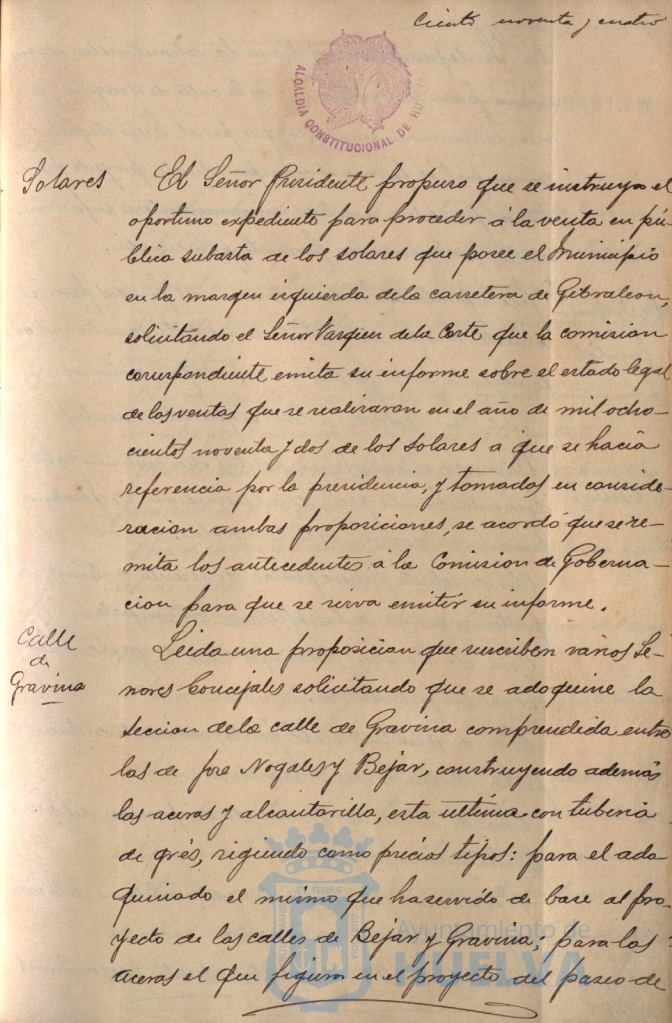 Ciento noventa y cuatro
ALCALDIA CONSTITUCIONAL DE HU
Solares
El Señor Presidente propuso que se instruya el
oportuno expediente para proceder á la venta en pú-
blica subasta de los solares que posee el Municipio
en la margen izquierda de la carretera de Gibraleon,
solicitando el Señor Vazquez de la Corte que la comision
correspondiente emita su informe sobre el estado legal
de las ventas que se realizaran en el año de mil ocho-
cientos noventa y dos de los solares a que se hacia
referencia por la presidencia, y tomadas en conside-
racion ambas proposiciones, se acordó que se re-
mita los antecedentes á la Comision de Goberna-
cion para que se sirva emitir su informe.
Calle
de
Gravina
Leida una proposicion que suscriben varios Se-
ñores Concejales solicitando que se adoquine la
seccion de la calle de Gravina comprendida entre
las de Jose Nogales y Bejar, construyendo además
las aceras y alcantarilla, esta última con tuberia
de grés, rigiendo como precios tipos: para el ado
quinado el mismo que ha servido de base al pro-
yecto de las calles de Bejar y Gravina; para las
aceras el que figura en el proyecto del paseo de
Ayuntamiento de
HUELVA